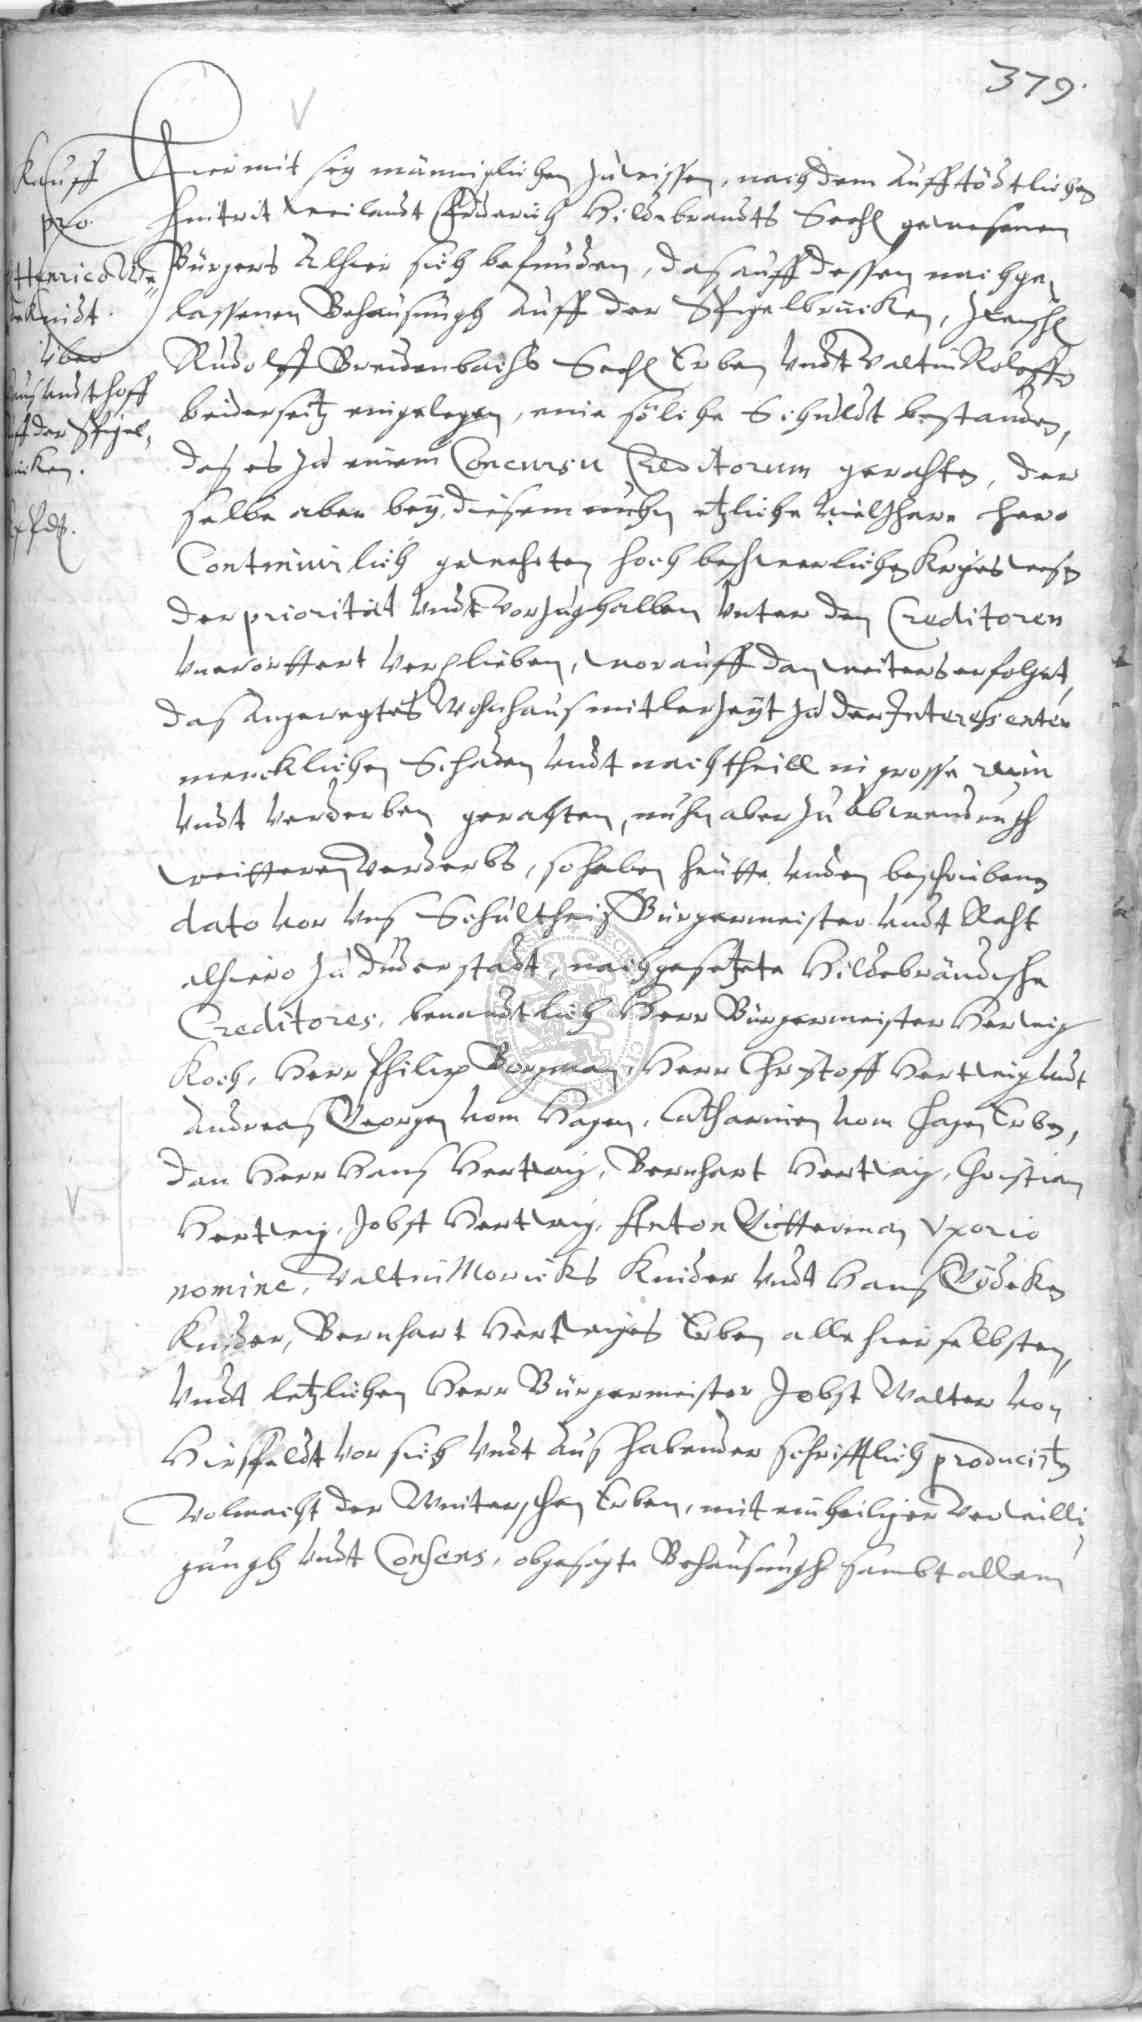 379.
Kauff
pro
Henrico
knidt.
über
haus undt hoff
auff der Spigel-
brücken.
Hiermit sey männiglichen zu wissen, nach dem auff tödtlichen
hintrit weilandt Friderich Hildebrandts Seehl gewesenen
Bürgers Alhier sich befunden, das auff dessen nachge-
lassenen Behausungh auff der Spigelbrücken, zwischen
Rudolff Breidenbachs Seehl Erben undt Valtin Roloffs
beiderseitz eingelegen, eine söliche Schuldt bestanden,
das es zu einem Concursu Creditorum gerahten, der
selbe aber bey diesem nuhn etzliche viell Jhare hero
Continuirlich gewehrten hoch beschwerlichen Krigeswesen
der priorität undt vorzugh halben unter den Creditoren
unerörttert verplieben, worauff dan weiters erfolget,
das angeregtes Wohnhaus mitlerzeyt zu der Interessenten
mercklichen Schaden undt nachtheill in grosse ruin
undt verderben gerahten, nuhn aber zu abwendungh
weitteren Verderbs, so haben heutte unden beschriebenen
dato vor uns Schultheis Bürgermeister undt Raht
alhiero zu Duderstadt, nachgesetzete Hildebrändische
Creditores, benandtlich Herr Bürgermeister Herwig
Koch, Herr Philip Borgman, Herr Christoff Hertwig undt
Andreas Georgen vom Hagen, Catharinen vom Hagen Erben,
dan Herr Hans Hertwig, Bernhart Hertwig, Christian
Hertwig, Jobst Hertwig, Anton Uxorio
nomine, Valtin Moricks Kinder undt Hans Gödeken
Kinder, Bernhart Hertwiges Erben alle hierselbsten,
undt letzlichen Herr Bürgermeister Jobst Walter von
Hirsfeldt vor sich undt aus habender schrifftlich producirten
Volmacht der Erben, mit einheiliger verwilli-
gungh undt Consens, obgesagte Behausungh sambt allem